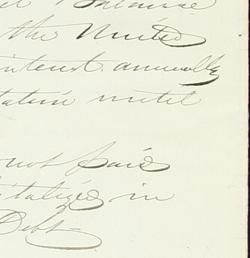 the United
interest annually
tation until
not paid
italized in
Debt